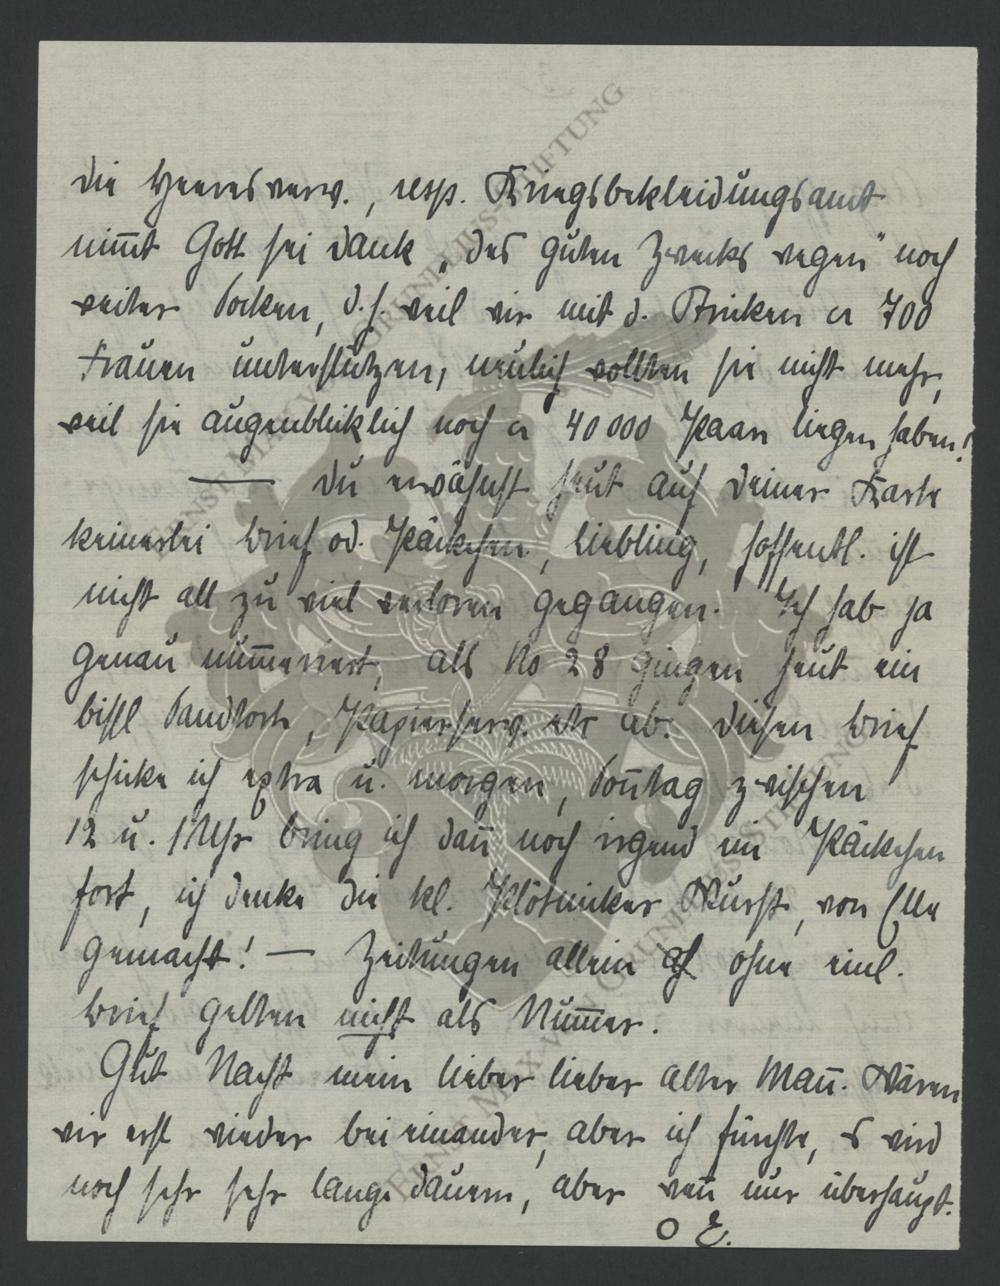 die Heeresverw., resp. Kriegsbekleidungsamt
nim̅t Gott sei dank „des guten Zwecks wegen" noch
weiter Socken, d.h. weil wir mit d. Stricken ca 700
Frauen unterstützen, neulich wollten sie nicht mehr,
weil sie augenbliklich noch ca 40 000 Paar liegen haben!
— Du erwähnst heut auf deiner Karte
keinerlei Brief od. Päckchen, Liebling, hoffentl. ist
nicht all zu viel verloren gegangen. Ich hab ja
genau num̅eriert, als No 28 gingen heut ein
bissl Sandtorte, Papierserv. etc ab. diesen Brief
schicke ich extra u. morgen, Son̅tag zwischen
12 u. 1 Uhr bring ich dan̅ noch irgend ein Päckchen
fort, ich denke die kl. Wurst, von Ella
gemacht! — Zeitungen allein ohne einl.
Brief gelten nicht als Num̅er.
Gut Nacht mein lieber lieber alter Man̅. Wären
wir erst wieder bei einander, aber ich fürchte, es wird
noch sehr sehr lange dauern, aber wen̅ nur überhaupt.
O E.
ERNST MAX VON GRUNELIUS-STIFTUNG
ERNST MAX VON GRUNELIUS-STIFTUNG